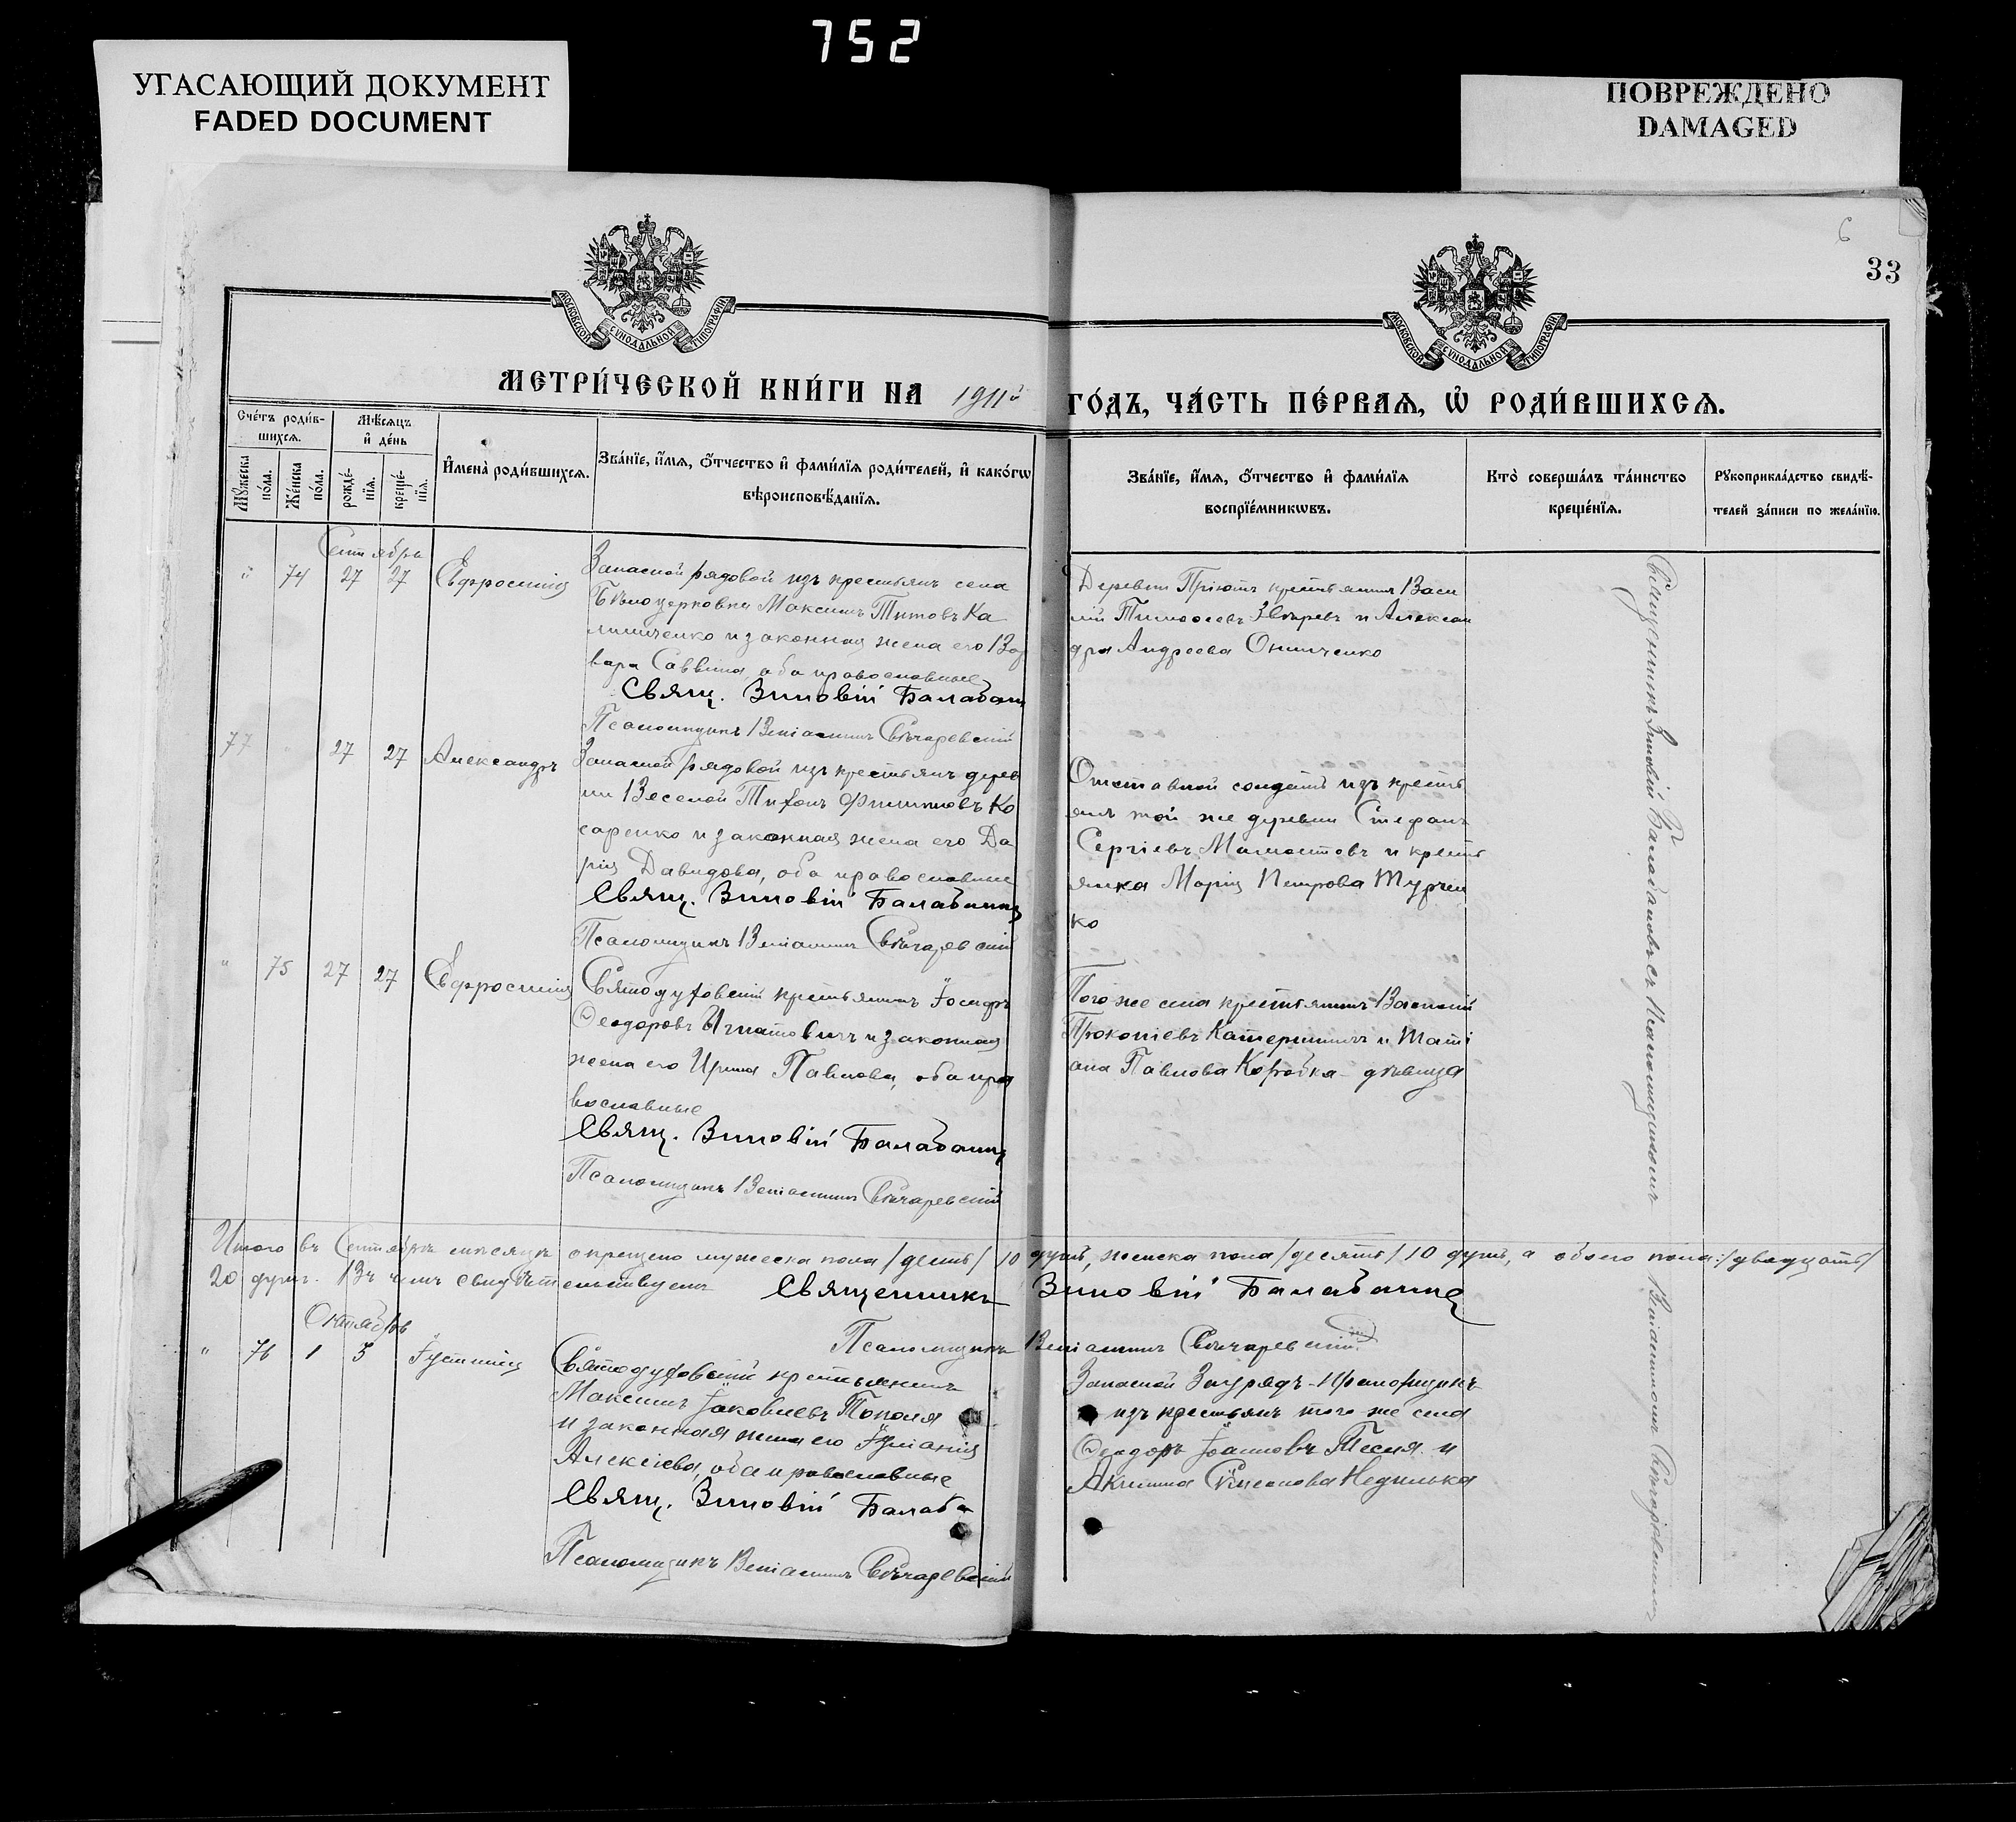 752
УГАСАЮЩИЙ ДОКУМЕНТ
FADED DOCUMENT
ПОВРЕЖДЕНО
DAMAGED
6
33
МОСКОВСКОЙ СѴНОДАЛЬНОЙ ТИПОГРАФІИ
МОСКОВСКОЙ СѴНОДАЛЬНОЙ ТИПОГРАФІИ
МЕТРИ́ЧЕСКОЙ КНИ́ГИ НА 1911й ГО́ДЪ, ЧА́СТЬ ПЕ́РВАЯ, Ѡ҆ РОДИ́ВШИХСѦ.
Сче́тъ роди́в-
шихсѧ.
Мꙋ́жеска по́ла.
Же́нска по́ла.
Мѣ́сѧцъ
и҆ де́нь
рожде́-
нїѧ.
креще́-
нїѧ.
И҆мена̀ роди́вшихсѧ.
Зва́нїе, и҆́мѧ, о҆́тчество и҆ фами́лїѧ роди́телей, и҆ како́гѡ
вѣроисповѣ́данїѧ.
Зва́нїе, и҆́мѧ, о҆́тчество и҆ фами́лїѧ
воспрїе́мникѡвъ.
Кто̀ соверша́лъ та́инство
креще́нїѧ.
Рꙋкоприкла́дство свидѣ́-
телей за́писи по жела́нїю.
Сентябрь
" 74 27 27 Евфросинія
Запасной рядовой изъ крестьянъ села
Бѣлоцерковка Максимъ Титовъ Ка
линиченко и законная жена его Вар
вара Саввина, оба православные
Свящ. Зиновій Балабан
Псаломщикъ Веніаминъ Свѣчаревскій
Деревни Пріютъ крестьянинъ Васи
лій Тимофеевъ Звѣревъ и Алексан
дра Андреева Онищенко
77 " 27 27 Александръ
Запасной рядовой изъ крестьянъ дерев
ни Веселой Тихонъ Филипповъ Ко
саренко и законная жена его Да
рія Давидова, оба православные
Свящ. Зиновій Балабанъ
Псаломщикъ Веніаминъ Свѣчаревскій
Отставной солдатъ изъ кресть
янъ той же деревни Стефанъ
Сергіевъ Мамонтовъ и кресть
янка Марія Петрова Турчен
ко
" 75 27 27 Евфросинія
Святодуховскій крестьянинъ Іосифъ
Ѳеодоровъ Игнатовичъ и законная
жена его Ирина Павлова, оба пра
вославные
Свящ. Зиновій Балабанъ
Псаломщикъ Веніаминъ Свѣчаревскій
Того же села крестьянинъ Василій
Прокопіевъ Катериничъ и Таті
ана Павлова Коробка - дѣвица
Священникъ Зиновій Балабанъ съ Псаломщикомъ Веніаминомъ Свѣчаревскимъ
Итого въ Сентябрѣ мѣсяцѣ окрещено мужеска пола /десять/ 10 душъ, женска пола /десять/ 10 душъ, а обоего пола: /двадцать/
20 душъ. Въ чемъ свидѣтельствуемъ Священникъ Зиновій Балабанъ
Псаломщикъ Веніаминъ Свѣчаревскій
Октябрь
" 76 1 3 Іустинія
Святодуховскій крестьянинъ
Максимъ Іаковлевъ Тополя
и законная жена его Іуліанія
Алексіева, оба православные
Свящ. Зиновій Балаба
Псаломщикъ Веніаминъ Свѣчаревскій
Запасной Заурядъ-
изъ крестьянъ того же села
Ѳеодоръ Іоанновъ Тесля и
Акилина Недилька